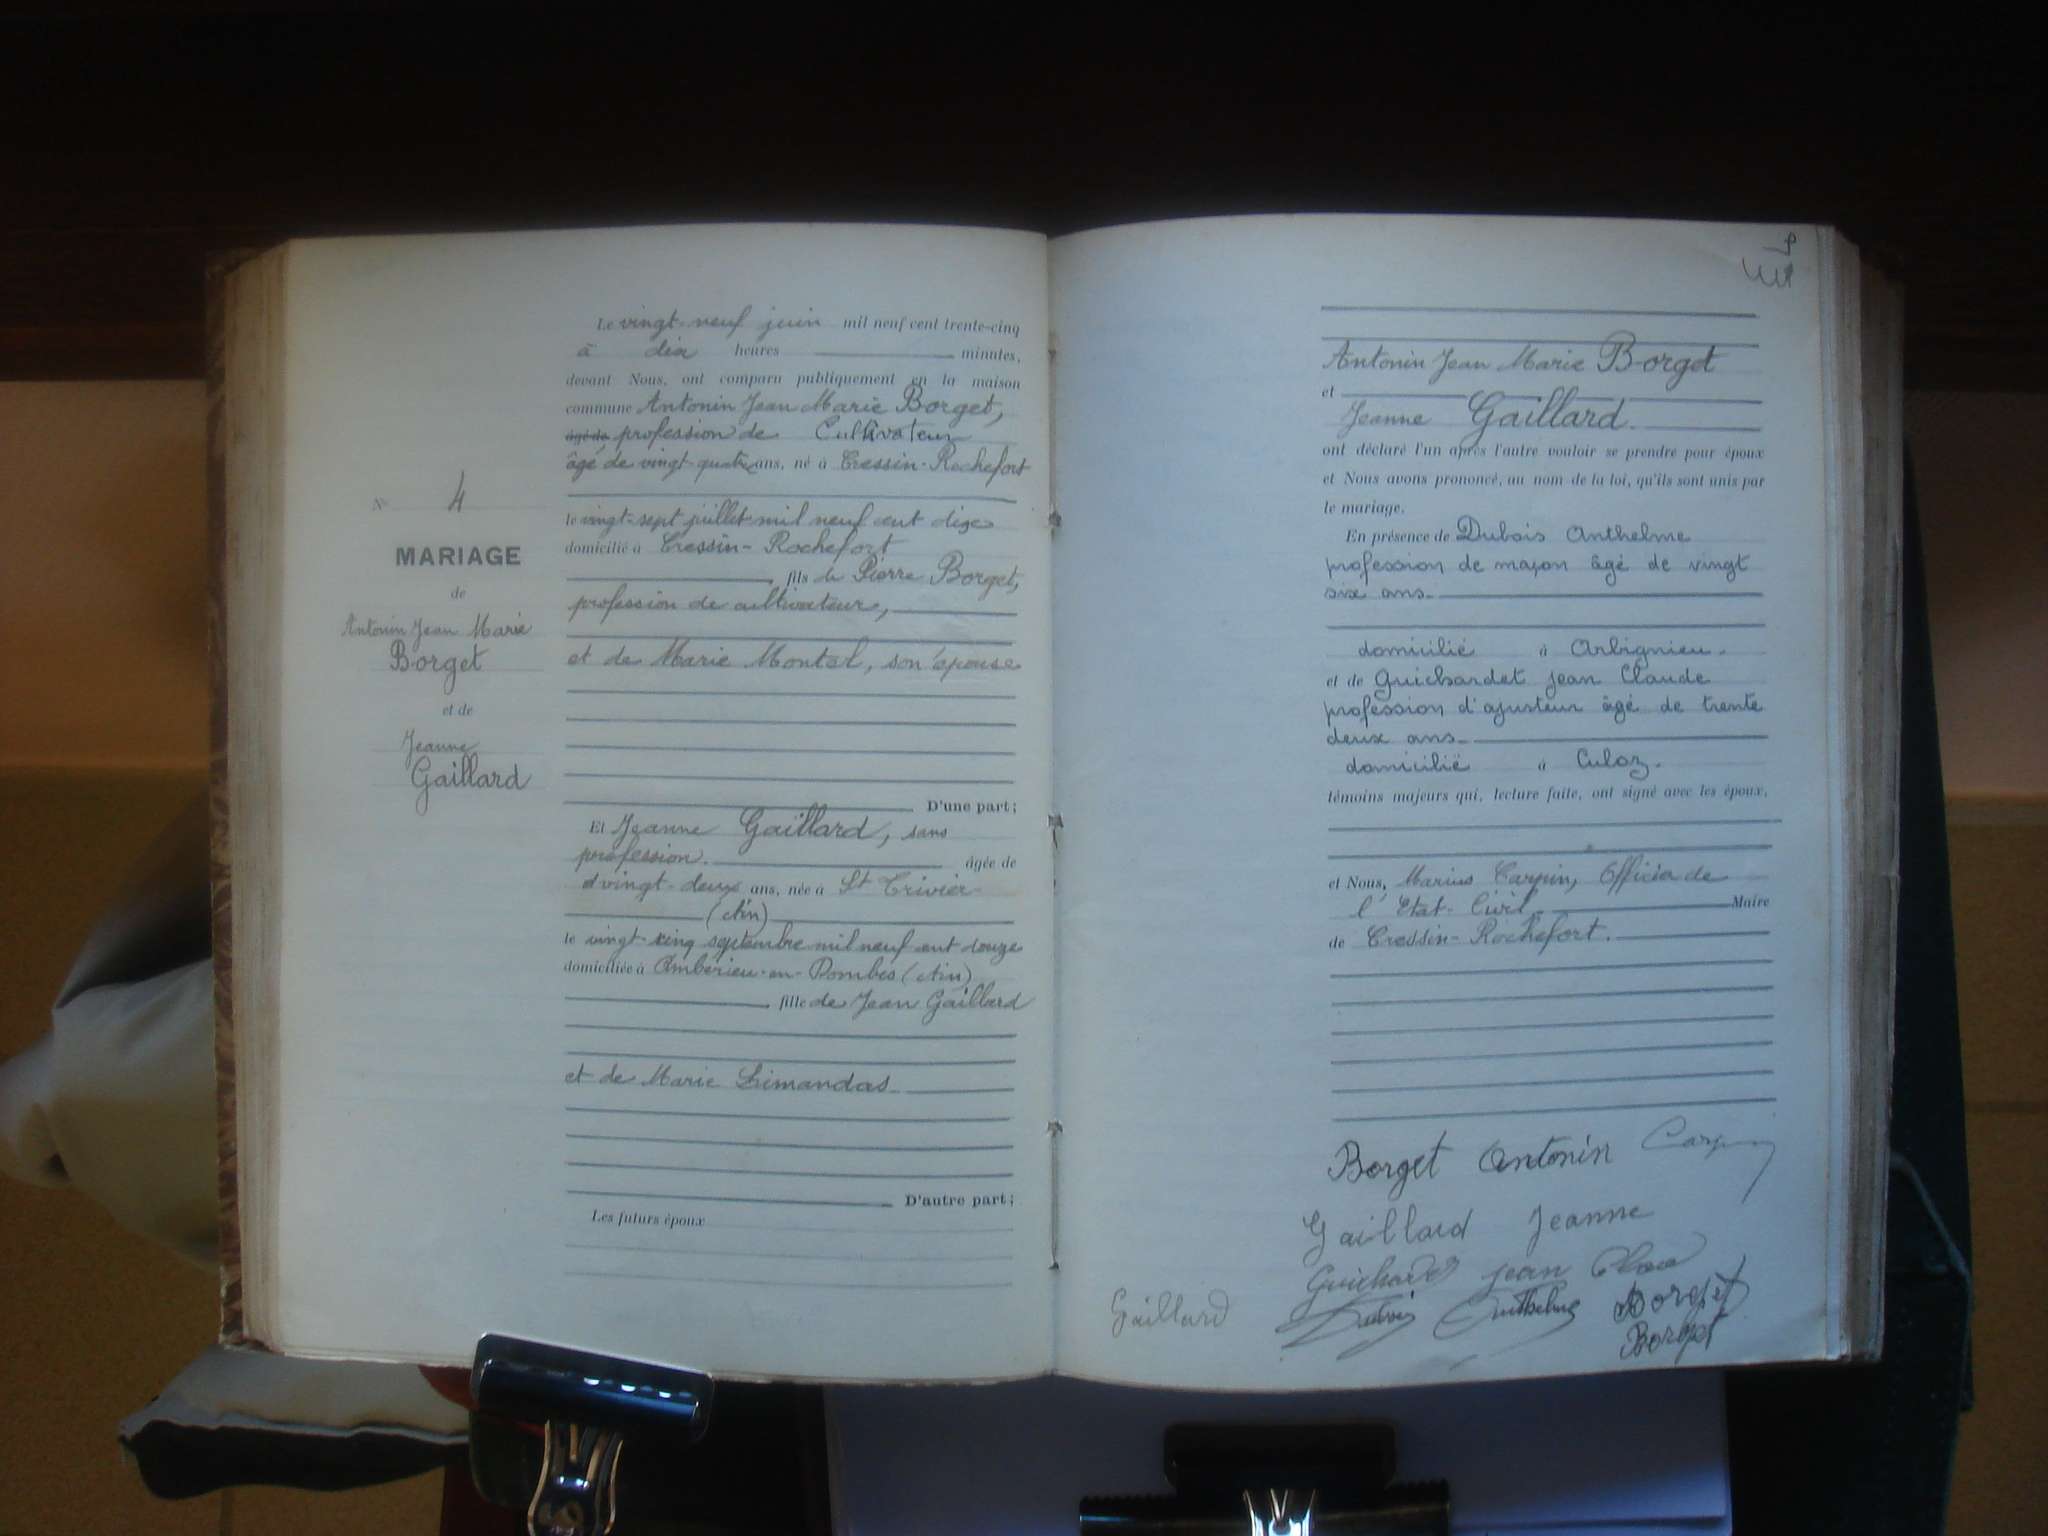 N° 4
MARIAGE
de
Antonin Jean Marie
Borget
et de
Jeanne
Gaillard
Le vingt-neuf juin mil neuf cent trente-cinq
à dix heures minutes,
devant Nous, ont comparu publiquement en la maison
commune Antonin Jean Marie Borget,
âgé de profession de Cultivateur
âgé de vingt-quatre ans, né à Cressin-Rochefort
le vingt-sept juillet mil neuf cent dix
domicilié à Cressin-Rochefort
fils de Pierre Borget,
profession de cultivateur,
et de Marie Montel, son épouse
D'une part;
Et Jeanne Gaillard, sans
profession. âgée de
vingt-deux ans, née à St Trivier-
(Ain)
le vingt-cinq septembre mil neuf cent douze
domiciliée à Ambérieu-en-Dombes (Ain)
fille de Jean Gaillard
et de Marie Limandas
D'autre part;
Les futurs époux
Antonin Jean Marie Borget
et
Jeanne Gaillard.
ont déclaré l'un après l'autre vouloir se prendre pour époux
et Nous avons prononcé, au nom de la loi, qu'ils sont unis par
le mariage.
En présence de Dubois Anthelme
profession de maçon âgé de vingt
six ans
domicilié à Arbignieu.
et de Guichardet Jean Claude
profession d'ajusteur âgé de trente
deux ans
domicilié à Culoz.
témoins majeurs qui, lecture faite, ont signé avec les époux,
et Nous, Marius Carpin, Officier de
l'Etat-Civil Maire
de Cressin-Rochefort.
Borget Antonin Carpin
Gaillard Jeanne
Guichardet Jean
Gaillard Dubois Anthelme Borget
Borget